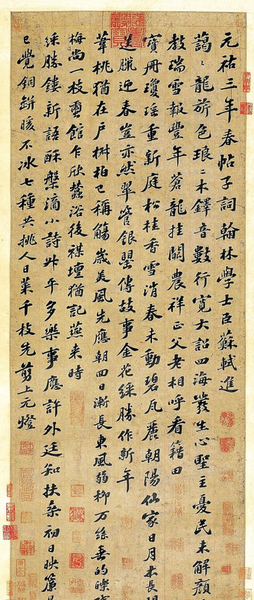 元祐三年春帖子詞翰林學士臣蘇軾進
藹藹龍旂色琅琅木鐸音數行寬大詔四海發生心聖主憂民未解顏
教瑞雪報豐年蒼龍挂闕農祥正父老相呼看籍田
寶冊瓊瑤重新庭松桂香雪消春未動碧瓦麗朝陽仙家日月本長
送臘迎春豈亦然翠管銀罌傳故事金花綵勝作新年
葦桃猶在戶椒柏已稱觴歲美風先應朝回日漸長東風弱柳萬絲垂的皪
梅尚一枝蠶館乍欣蠶浴後禖壇猶記燕來時
綵勝鏤新語酥槃滴小詩升年多樂事應許外廷知扶桑初日映簾
已覺銅缾暖不冰七種共挑人日菜千枝先剪上元燈